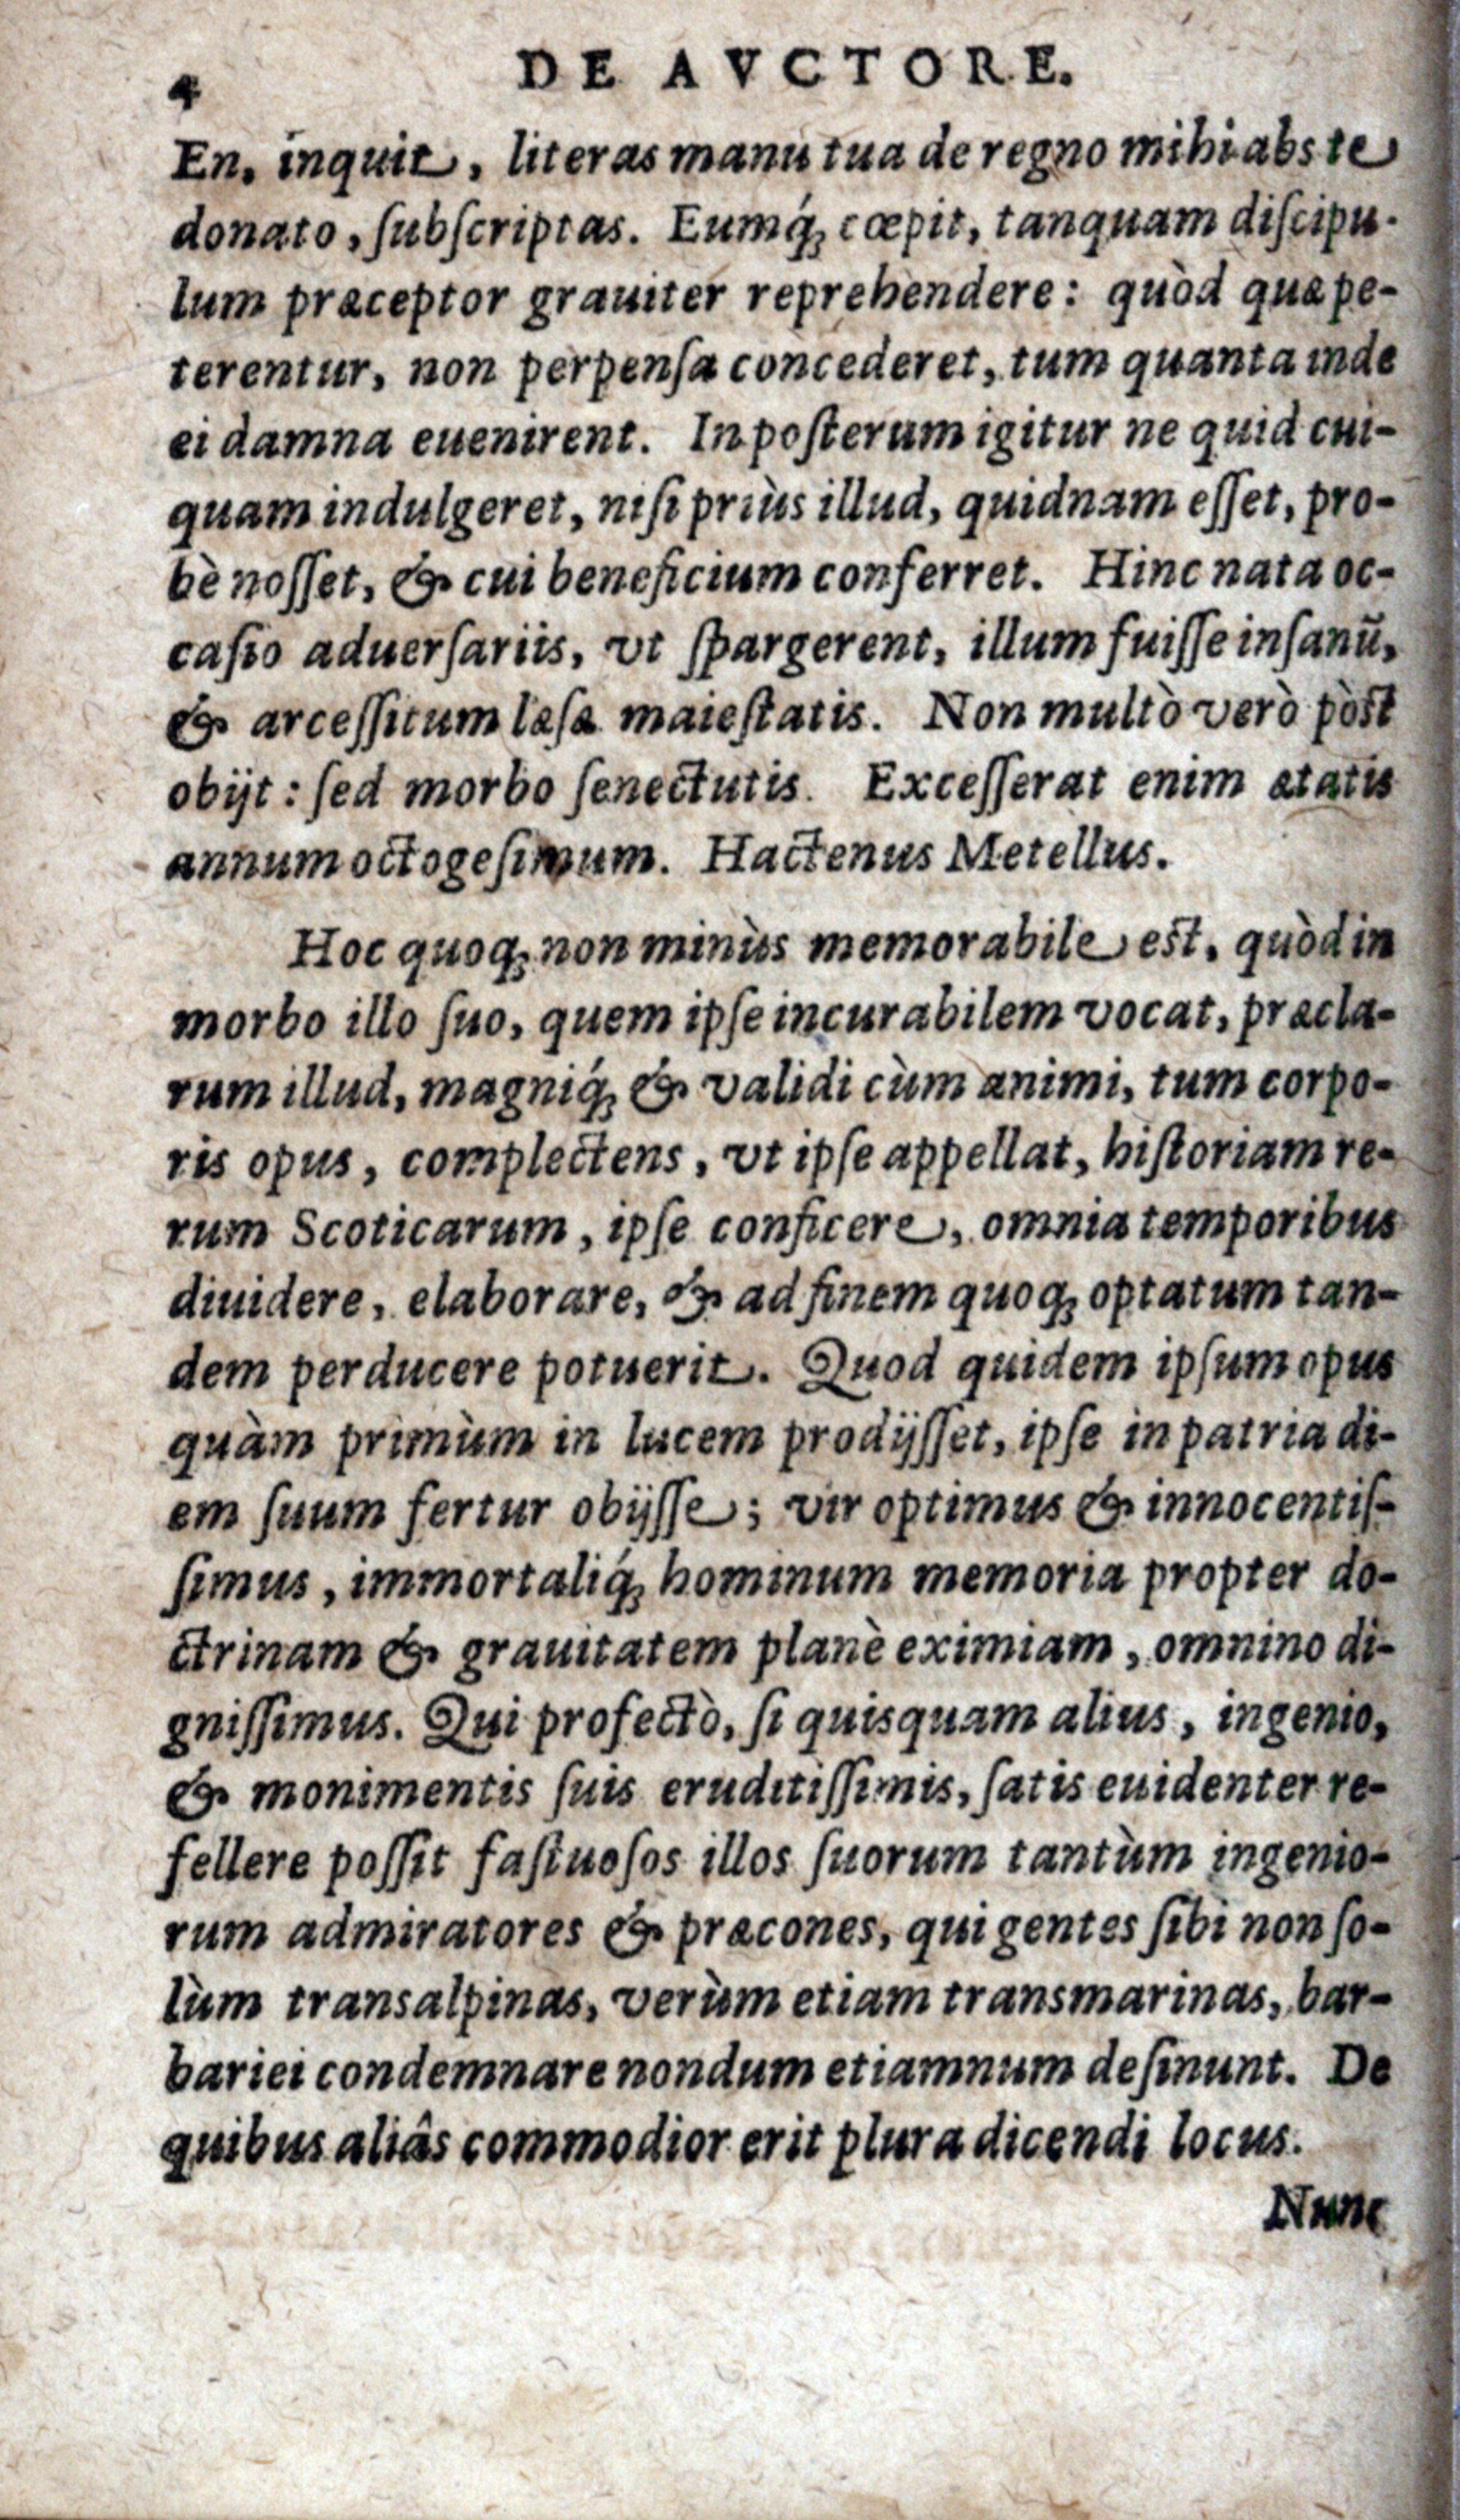 4
DE AVCTORE.
En, inquit, literas manu tua de regno mihi abs te
donato, ſubſcriptas. Eumq́; cœpit, tanquam diſcipu-
lum præceptor grauiter reprehendere: quòd quæ pe-
terentur, non perpenſa concederet, tum quanta inde
ei damna euenirent. In poſterum igitur ne quid cui-
quam indulgeret, niſi priùs illud, quidnam eſſet, pro-
bè noſſet, & cui beneficium conferret. Hinc nata oc-
caſio aduerſariis, vt ſpargerent, illum fuiſſe inſanũ,
& arceſſitum læſæ maieſtatis. Non multò verò pòſt
obijt: ſed morbo ſenectutis. Exceſſerat enim ætatis
annum octogeſimum. Hactenus Metellus.
Hoc quoq; non minùs memorabile eſt, quòd in
morbo illo ſuo, quem ipſe incurabilem vocat, præcla-
rum illud, magniq́; & validi cùm animi, tum corpo-
ris opus, complectens, vt ipſe appellat, hiſtoriam re-
rum Scoticarum, ipſe conficere, omnia temporibus
diuidere, elaborare, & ad finem quoq; optatum tan-
dem perducere potuerit. Quod quidem ipſum opus
quàm primùm in lucem prodijſſet, ipſe in patria di-
em ſuum fertur obijſſe; vir optimus & innocentiſ-
ſimus, immortaliq́; hominum memoria propter do-
ctrinam & grauitatem planè eximiam, omnino di-
gniſſimus. Qui profectò, ſi quisquam alius, ingenio,
& monimentis ſuis eruditiſſimis, ſatis euidenter re-
fellere poſſit faſtuoſos illos ſuorum tantùm ingenio-
rum admiratores & præcones, qui gentes ſibi non ſo-
lùm transalpinas, verùm etiam transmarinas, bar-
bariei condemnare nondum etiamnum deſinunt. De
quibus aliâs commodior erit plura dicendi locus.
Nunc